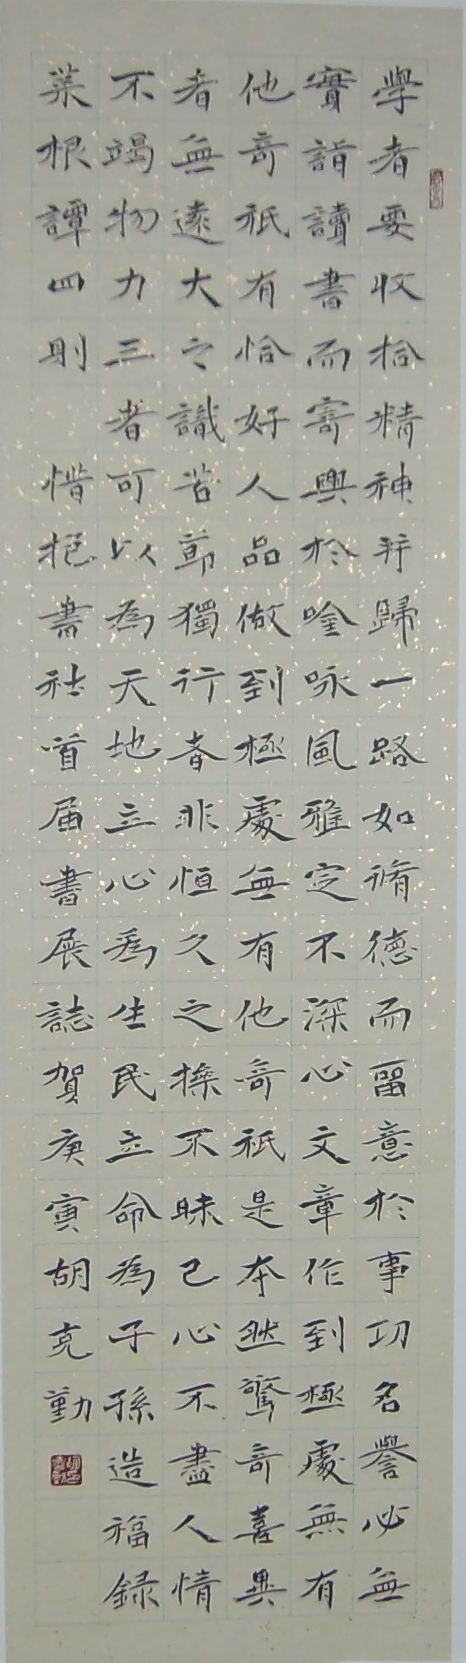 學者要收拾精神并歸一路如脩德而留意於事功名譽必無
實詣讀書而寄興於吟咏風雅定不深心文章作到極處無有
他奇祇有恰好人品做到極處無有他奇祇是本然驚奇喜異
者無遠大之識苦節獨行者非恒久之操不昧己心不盡人情
不竭物力三者可以為天地立心為生民立命為子孫造福録
菜根譚四則 惜抱書社首届書展誌賀庚寅胡克勤